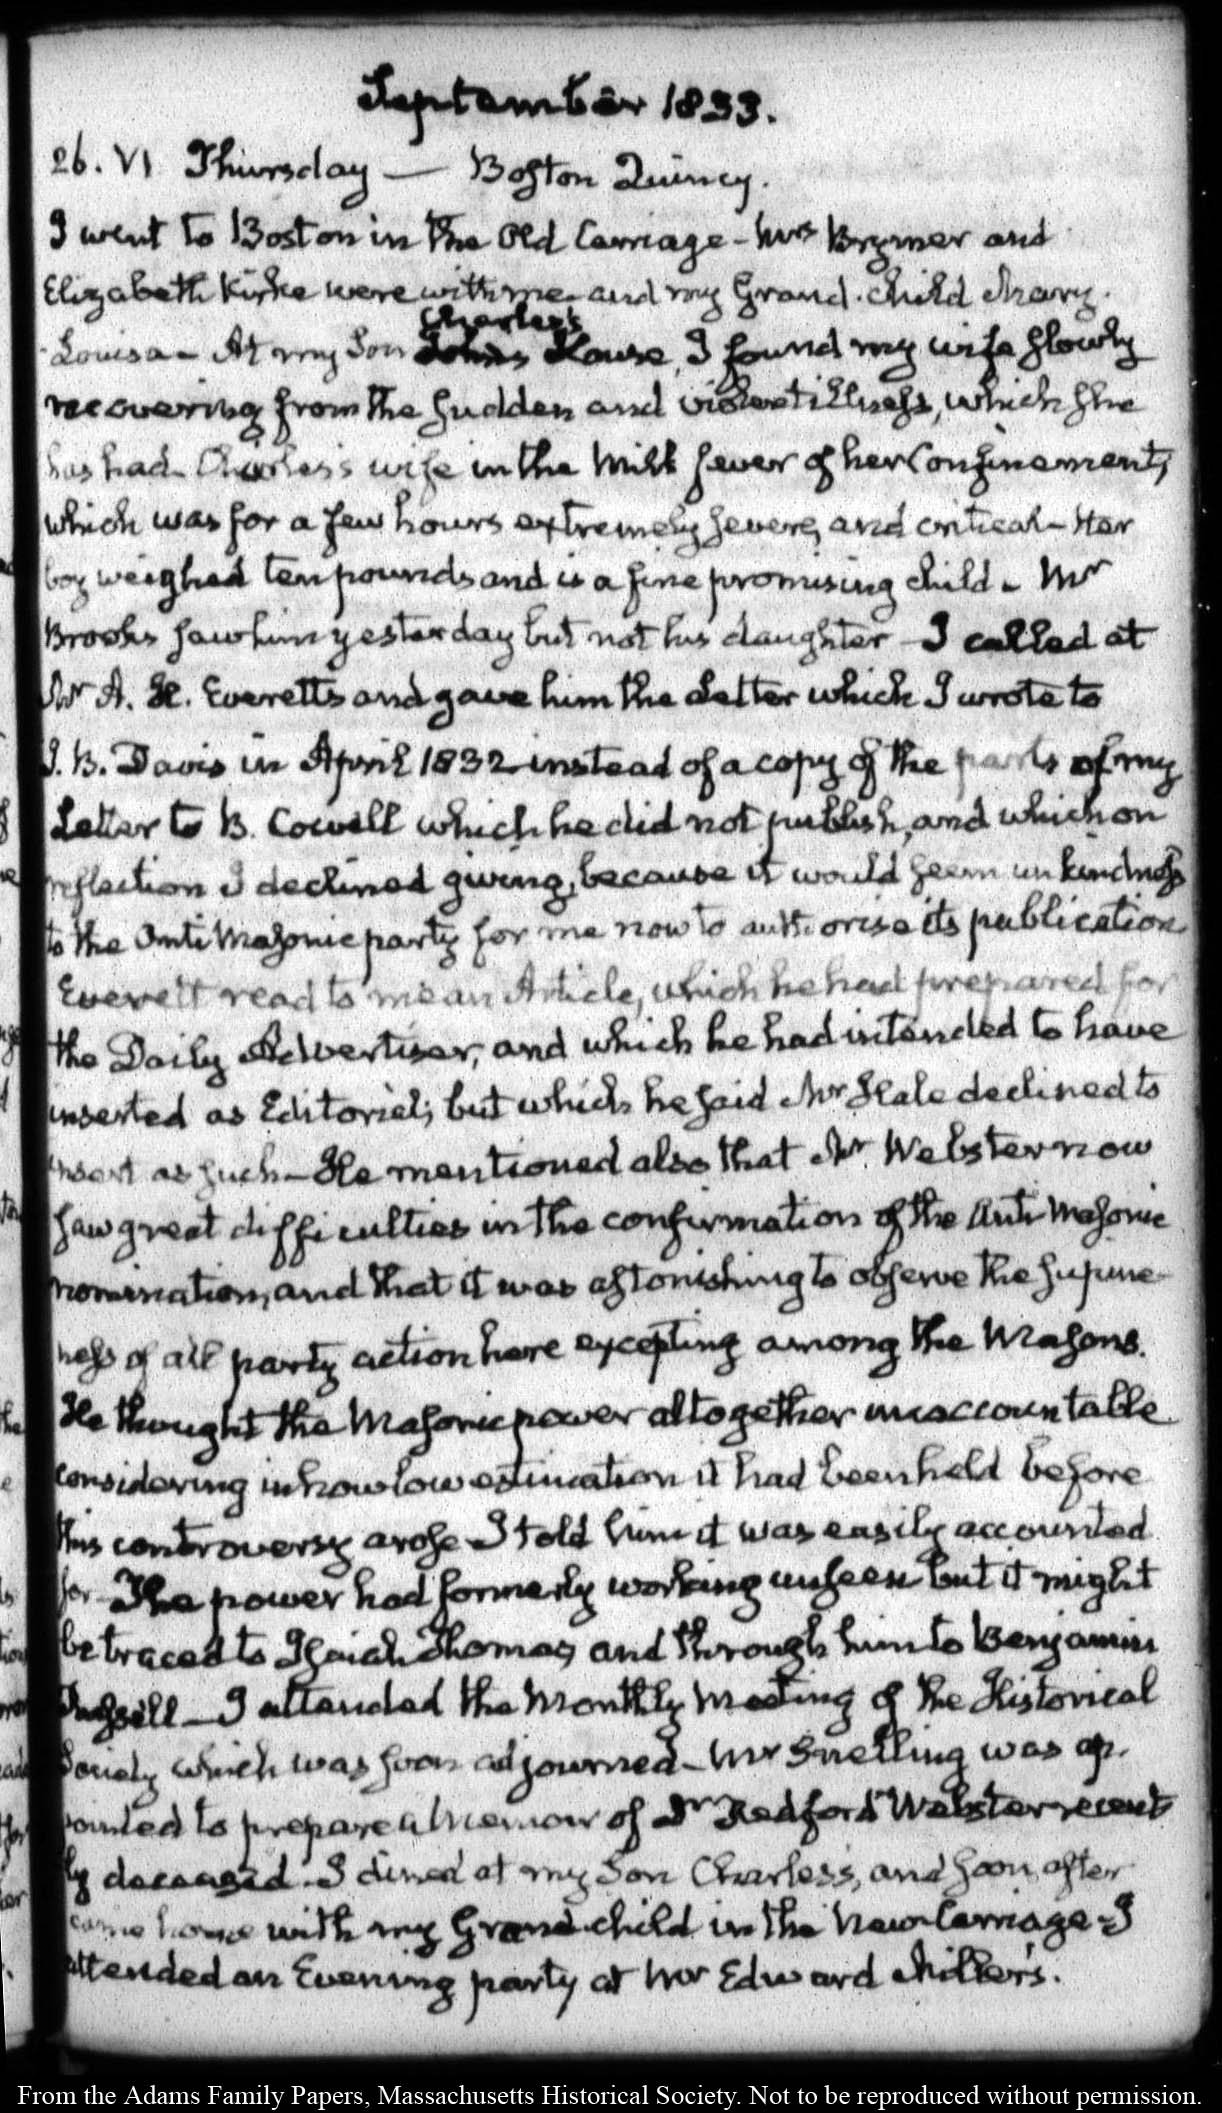 September 1833.
26. VI Thursday — Boston Quincy.
I went to Boston in the Old Carriage - Mrs Brymer and
Elizabeth Kirke were with me - and my Grand-child Mary-
Louisa - At my Son Charles's House, I found my wife slowly
recovering from the sudden and violent illness, which she
has had - Charles's wife in the Milk fever of her Confinement,
which was for a few hours extremely severe, and critical - Her
boy weighed ten pounds and is a fine promising child - Mr
Brooks saw him yesterday but not his daughter - I called at
Mr A. H. Everetts and gave him the Letter which I wrote to
J. B. Davis in April 1832 instead of a copy of the parts of my
Letter to B. Cowell which he did not publish, and which on
reflection I declined giving, because it would seem unkindness
to the Anti Masonic party for me now to authorise its publication
Everett read to me an Article, which he had prepared for
the Daily Advertiser, and which he had intended to have
inserted as Editorial; but which he said Mr Hale declined to
insert as such - He mentioned also that Mr. Webster now
saw great difficulties in the confirmation of the Anti Masonic
nomination, and that it was astonishing to observe the supine-
ness of all party action here excepting among the Masons.
He thought the Masonic power altogether unaccountable
considering in how low estimation it had been held before
this controversy arose - I told him it was easily accounted
for - The power had formerly working unseen but it might
be traced to Isaiah Thomas, and through him to Benjamin
Russell - I attended the Monthly Meeting of the Historical
Society which was soon adjourned - Mr Snelling was ap-
pointed to prepare a Memoir of Dr Redford Webster recent-
ly deceased. I dined at my Son Charles's, and soon after
came home with my Grand-child in the New Carriage - I
attended an Evening party at Mr Edward Miller's.
From the Adams Family Papers, Massachusetts Historical Society. Not to be reproduced without permission.